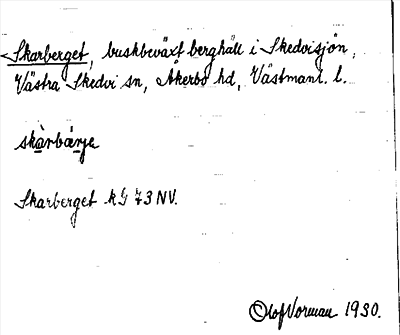 Skarberget, buskbeväxt berghäll i Skedvisjön,
Västra Skedvi sn, Åkerbo hd, Västmanl. l.
skàrbárje
Skarberget kG 73 NV.
Olof Vorman 1930.